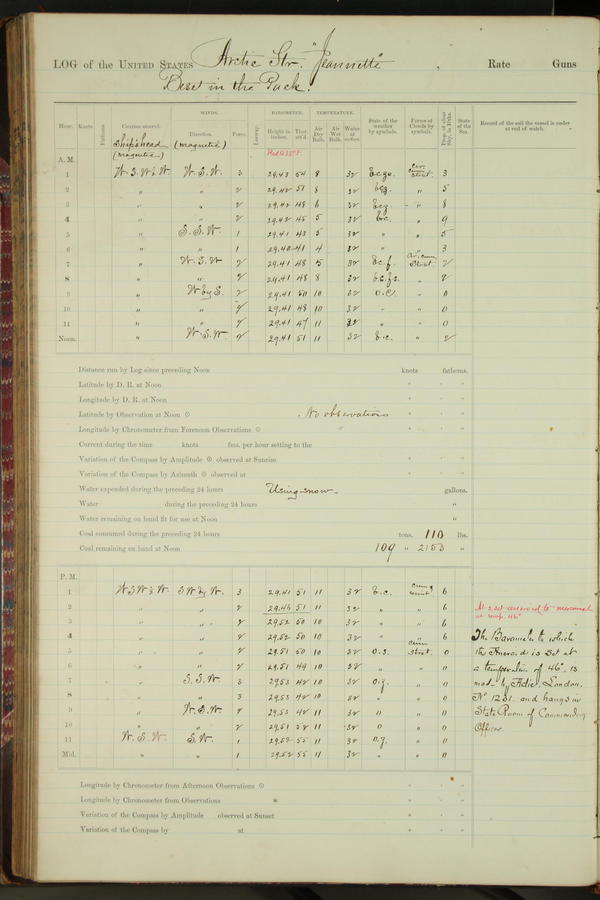 LOG of the UNITED STATES Arctic Str. "Jeannette", Rate Guns
Beset in the Pack.
WINDS. BAROMETER. TEMPERATURE.
Hour. Knots. Fathoms. Courses steered. Direction. Force. Leeway. Height in inches. Ther. att'd. Air Dry Bulb. Air Wet Bulb. Water at surface. State of the weather by symbols. Forms of Clouds by symbols. Prop. of clear Sky, in 10ths. State of the Sea. Record of the sail the vessel is under at end of watch.
Ship's head (magnetic) (magnetic)
A. M.
1 W.S.W.½W. W.S.W. 3 29.43 54 8 32 3
2 " " 2 29.42 51 8 32 " 5
3 " " 2 29.42 48 6 32 " 8
4 " " 2 29.42 45 5 32 b.c. " 9
5 " S.S.W. 1 29.41 43 5 32 " " 5
6 " " 1 29.40 41 4 32 " 3
7 " W.S.W. 2 29.41 48 5 32 2
8 " " 2 29.41 48 8 32 " 2
9 " W by S. 2 29.41 50 10 32 o.c. " 0
10 " " 2 29.41 48 10 32 " " 0
11 " " 2 29.41 47 11 32 " " 0
Noon. " W.S.W. 2 29.41 51 11 32 b.c. " 2
Distance run by Log since preceding Noon knots fathoms.
Latitude by D. R. at Noon
Longitude by D. R. at Noon
Latitude by Observation at Noon No observations
Longitude by Chronometer from Forenoon Observations "
Current during the time knots fms. per hour setting to the
Variation of the Compass by Amplitude observed at Sunrise
Variation of the Compass by Azimuth observed at
Water expended during the preceding 24 hours Using snow gallons.
Water during the preceding 24 hours "
Water remaining on hand fit for use at Noon "
Coal consumed during the preceding 24 hours tons. 110 lbs.
Coal remaining on hand at Noon 109 " 2153 "
P. M.
1 W.S.W.½W. SW by W. 3 29.41 51 11 32 b.c. 6
2 " " 2 29.46 51 11 32 " " 6
3 " " 2 29.52 50 10 32 " " 6
4 " " 2 29.52 50 10 32 " 6
5 " " 2 29.51 50 10 32 o.s. 0
6 " " 2 29.51 49 10 32 " " 0
7 " S.S.W. 3 29.53 42 10 32 " 0
8 " " 3 29.53 42 10 32 " " 0
9 " 2 29.53 42 11 32 " " 0
10 " " 2 29.51 11 32 " " 0
11 W.S.W. S.W. 1 29.52 55 11 32 " 0
Mid. " " 1 29.52 55 11 32 " " 0
at temp. 46°
The Barometer to which
the Aneroid is set at
a temperature of 46°, is
made by Adie, London,
No 1231. and hangs in
State Room of Commanding
Officer.
Longitude by Chronometer from Afternoon Observations
Longitude by Chronometer from Observations
Variation of the Compass by Amplitude observed at Sunset
Variation of the Compass by at